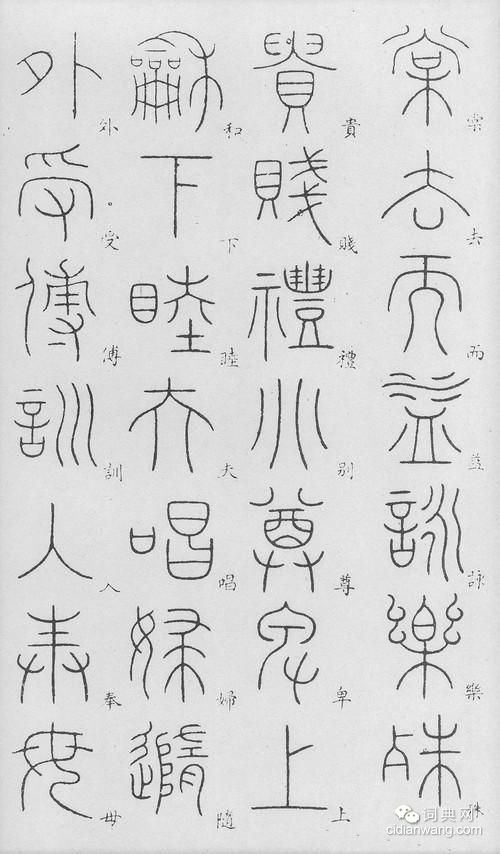 棠去而益詠樂殊
貴賤禮別尊卑上
和下睦夫唱婦隨
外受傅訓入奉母
词典网
cidianwang.com